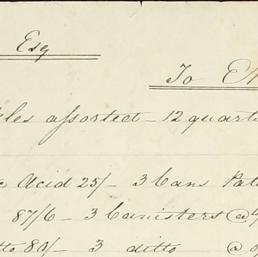 Esq
To
les assortect - 12 quart
Acid 25/- 3 Cans Pat
87/6 - 3 banisters @ 4
tto 80/- 3 ditto @